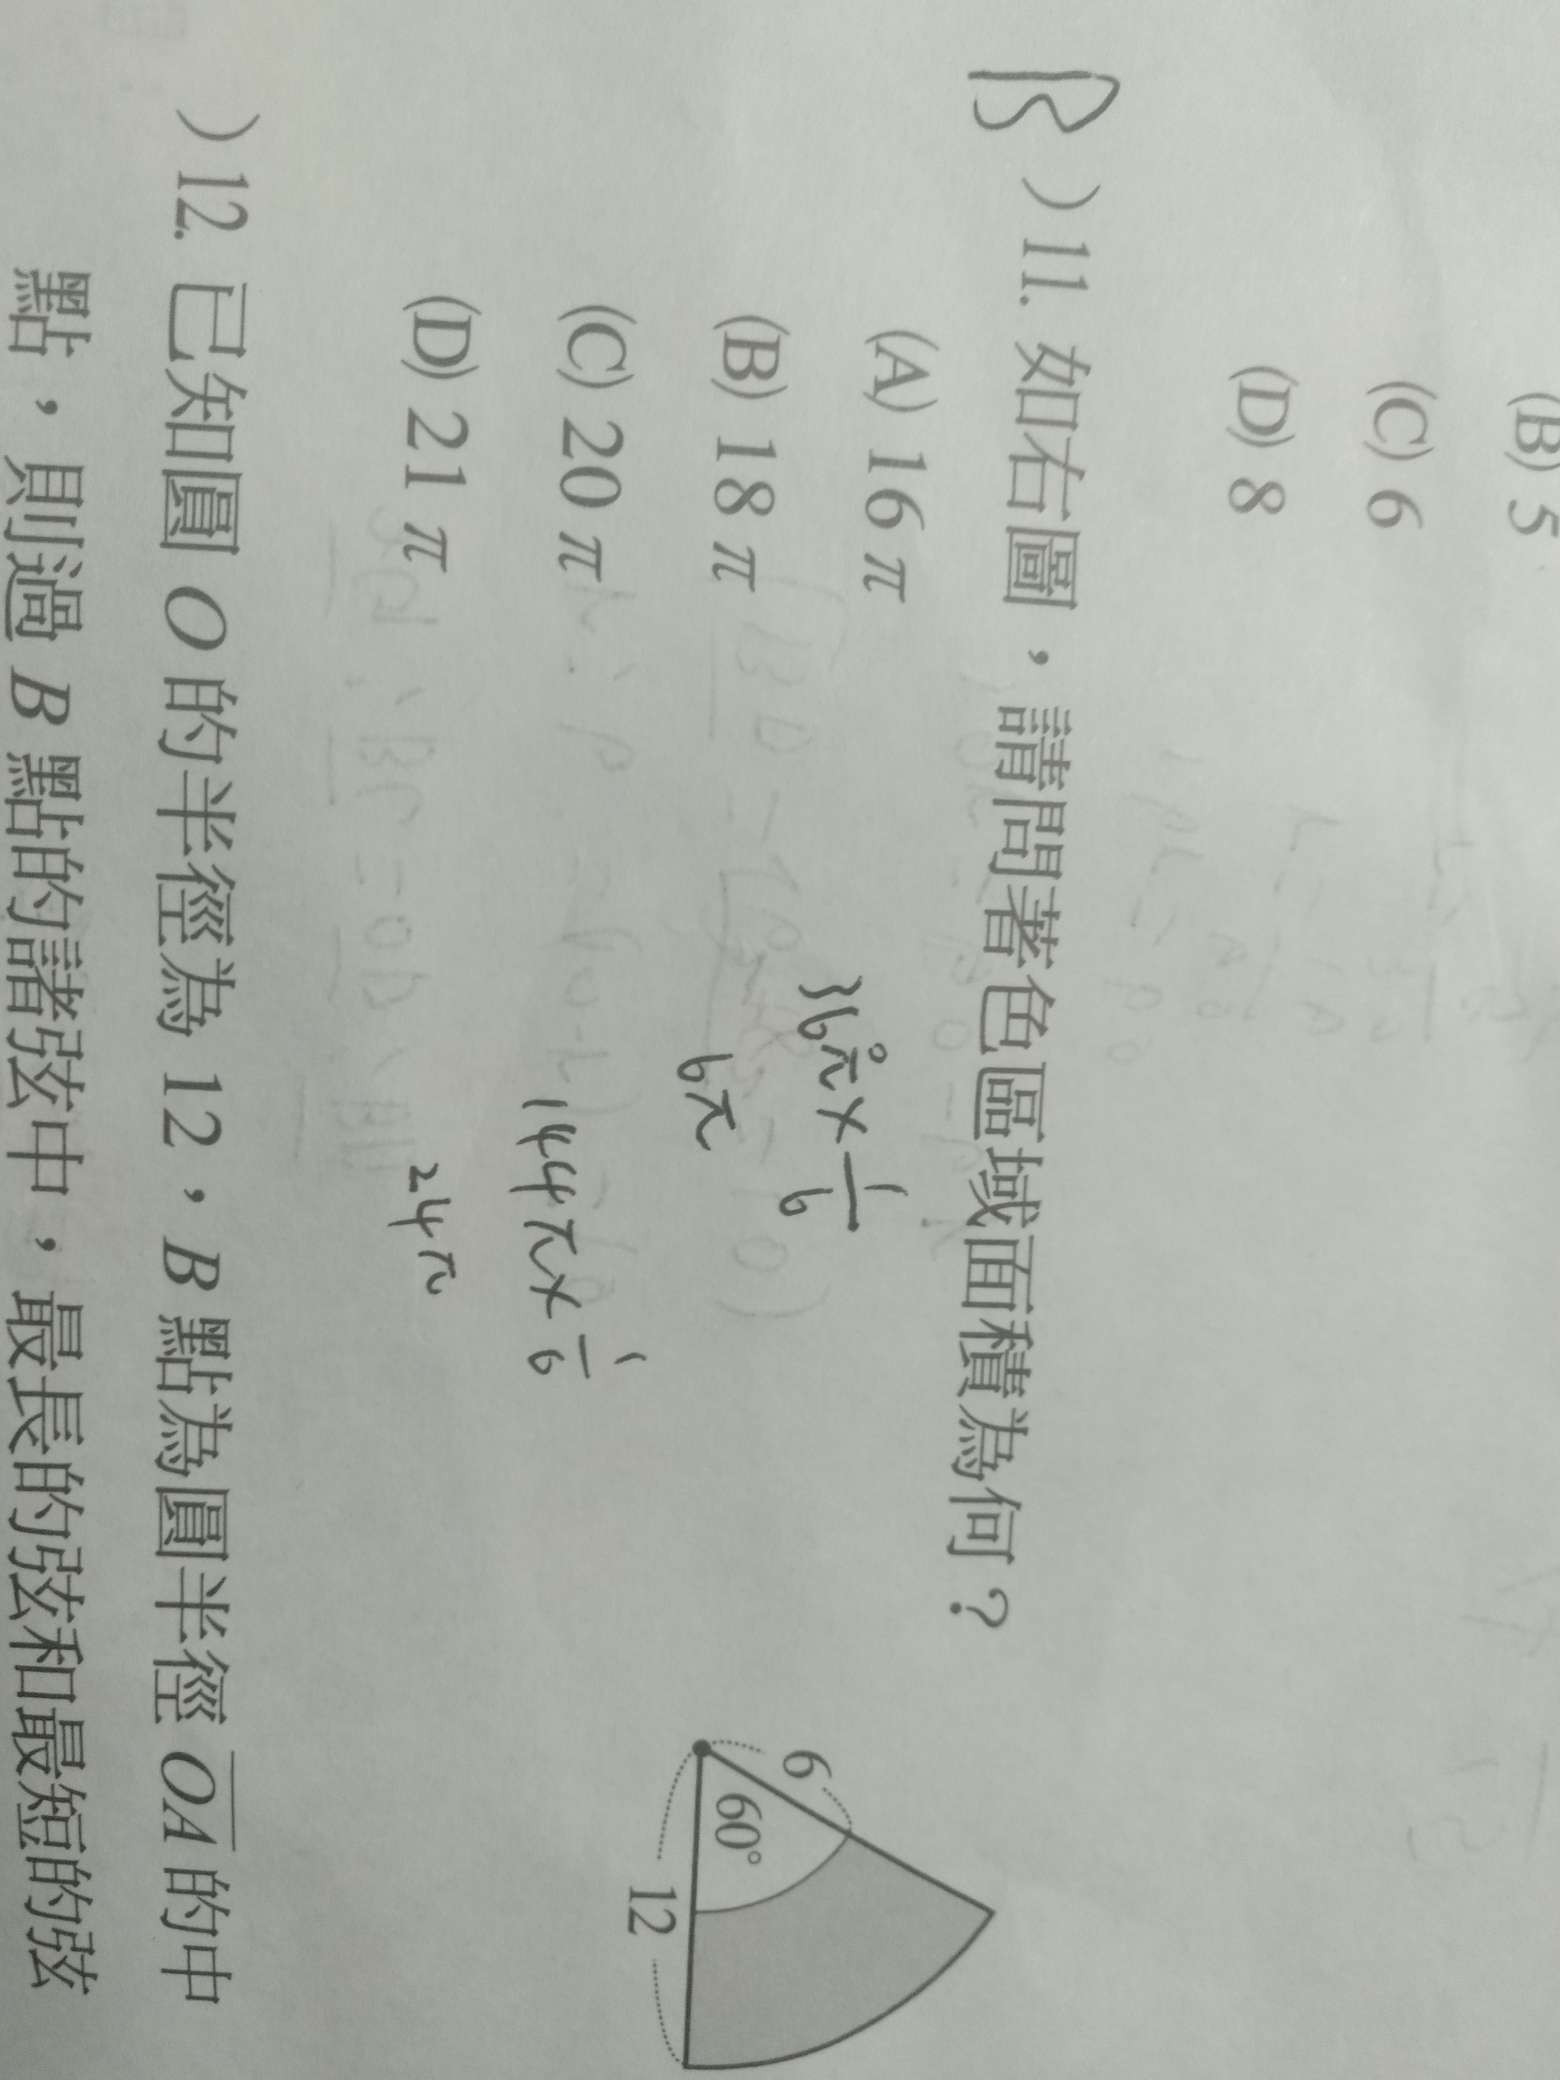 (B) 5
(C) 6
(D) 8
B )11. 如右圖，請問著色區域面積為何？
(A) 16 π
(B) 18 π
(C) 20 π
(D) 21 π
36π × 1/6
6π
144π × 1/6
24π
6
60°
12
)12. 已知圓 O 的半徑為 12，B 點為圓半徑 OA 的中
點，則過 B 點的諸弦中，最長的弦和最短的弦